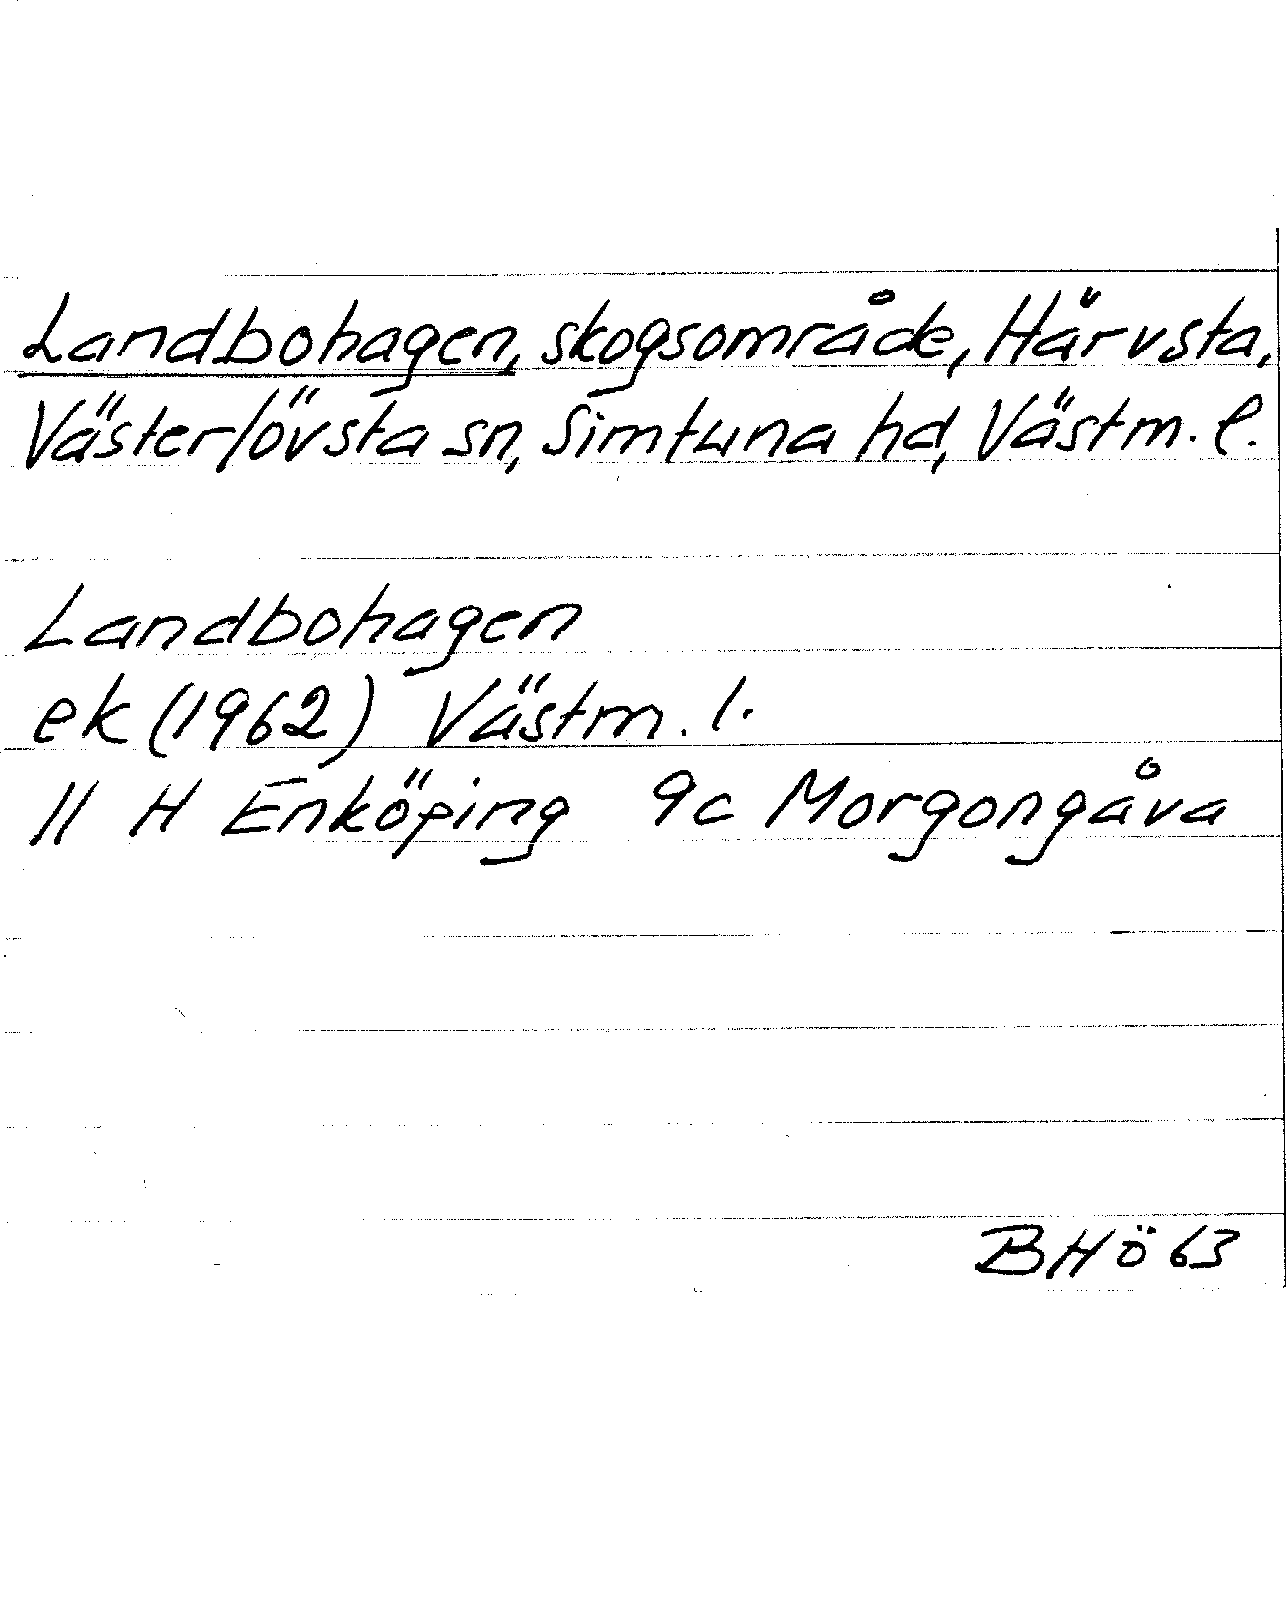 Landbohagen, skogsområde, Härvsta,
Västerlövsta sn, Simtuna hd, Västm. l.
Landbohagen
ek (1962) Västm. l.
11 H Enköping 9c Morgongåva
BHÖ 63